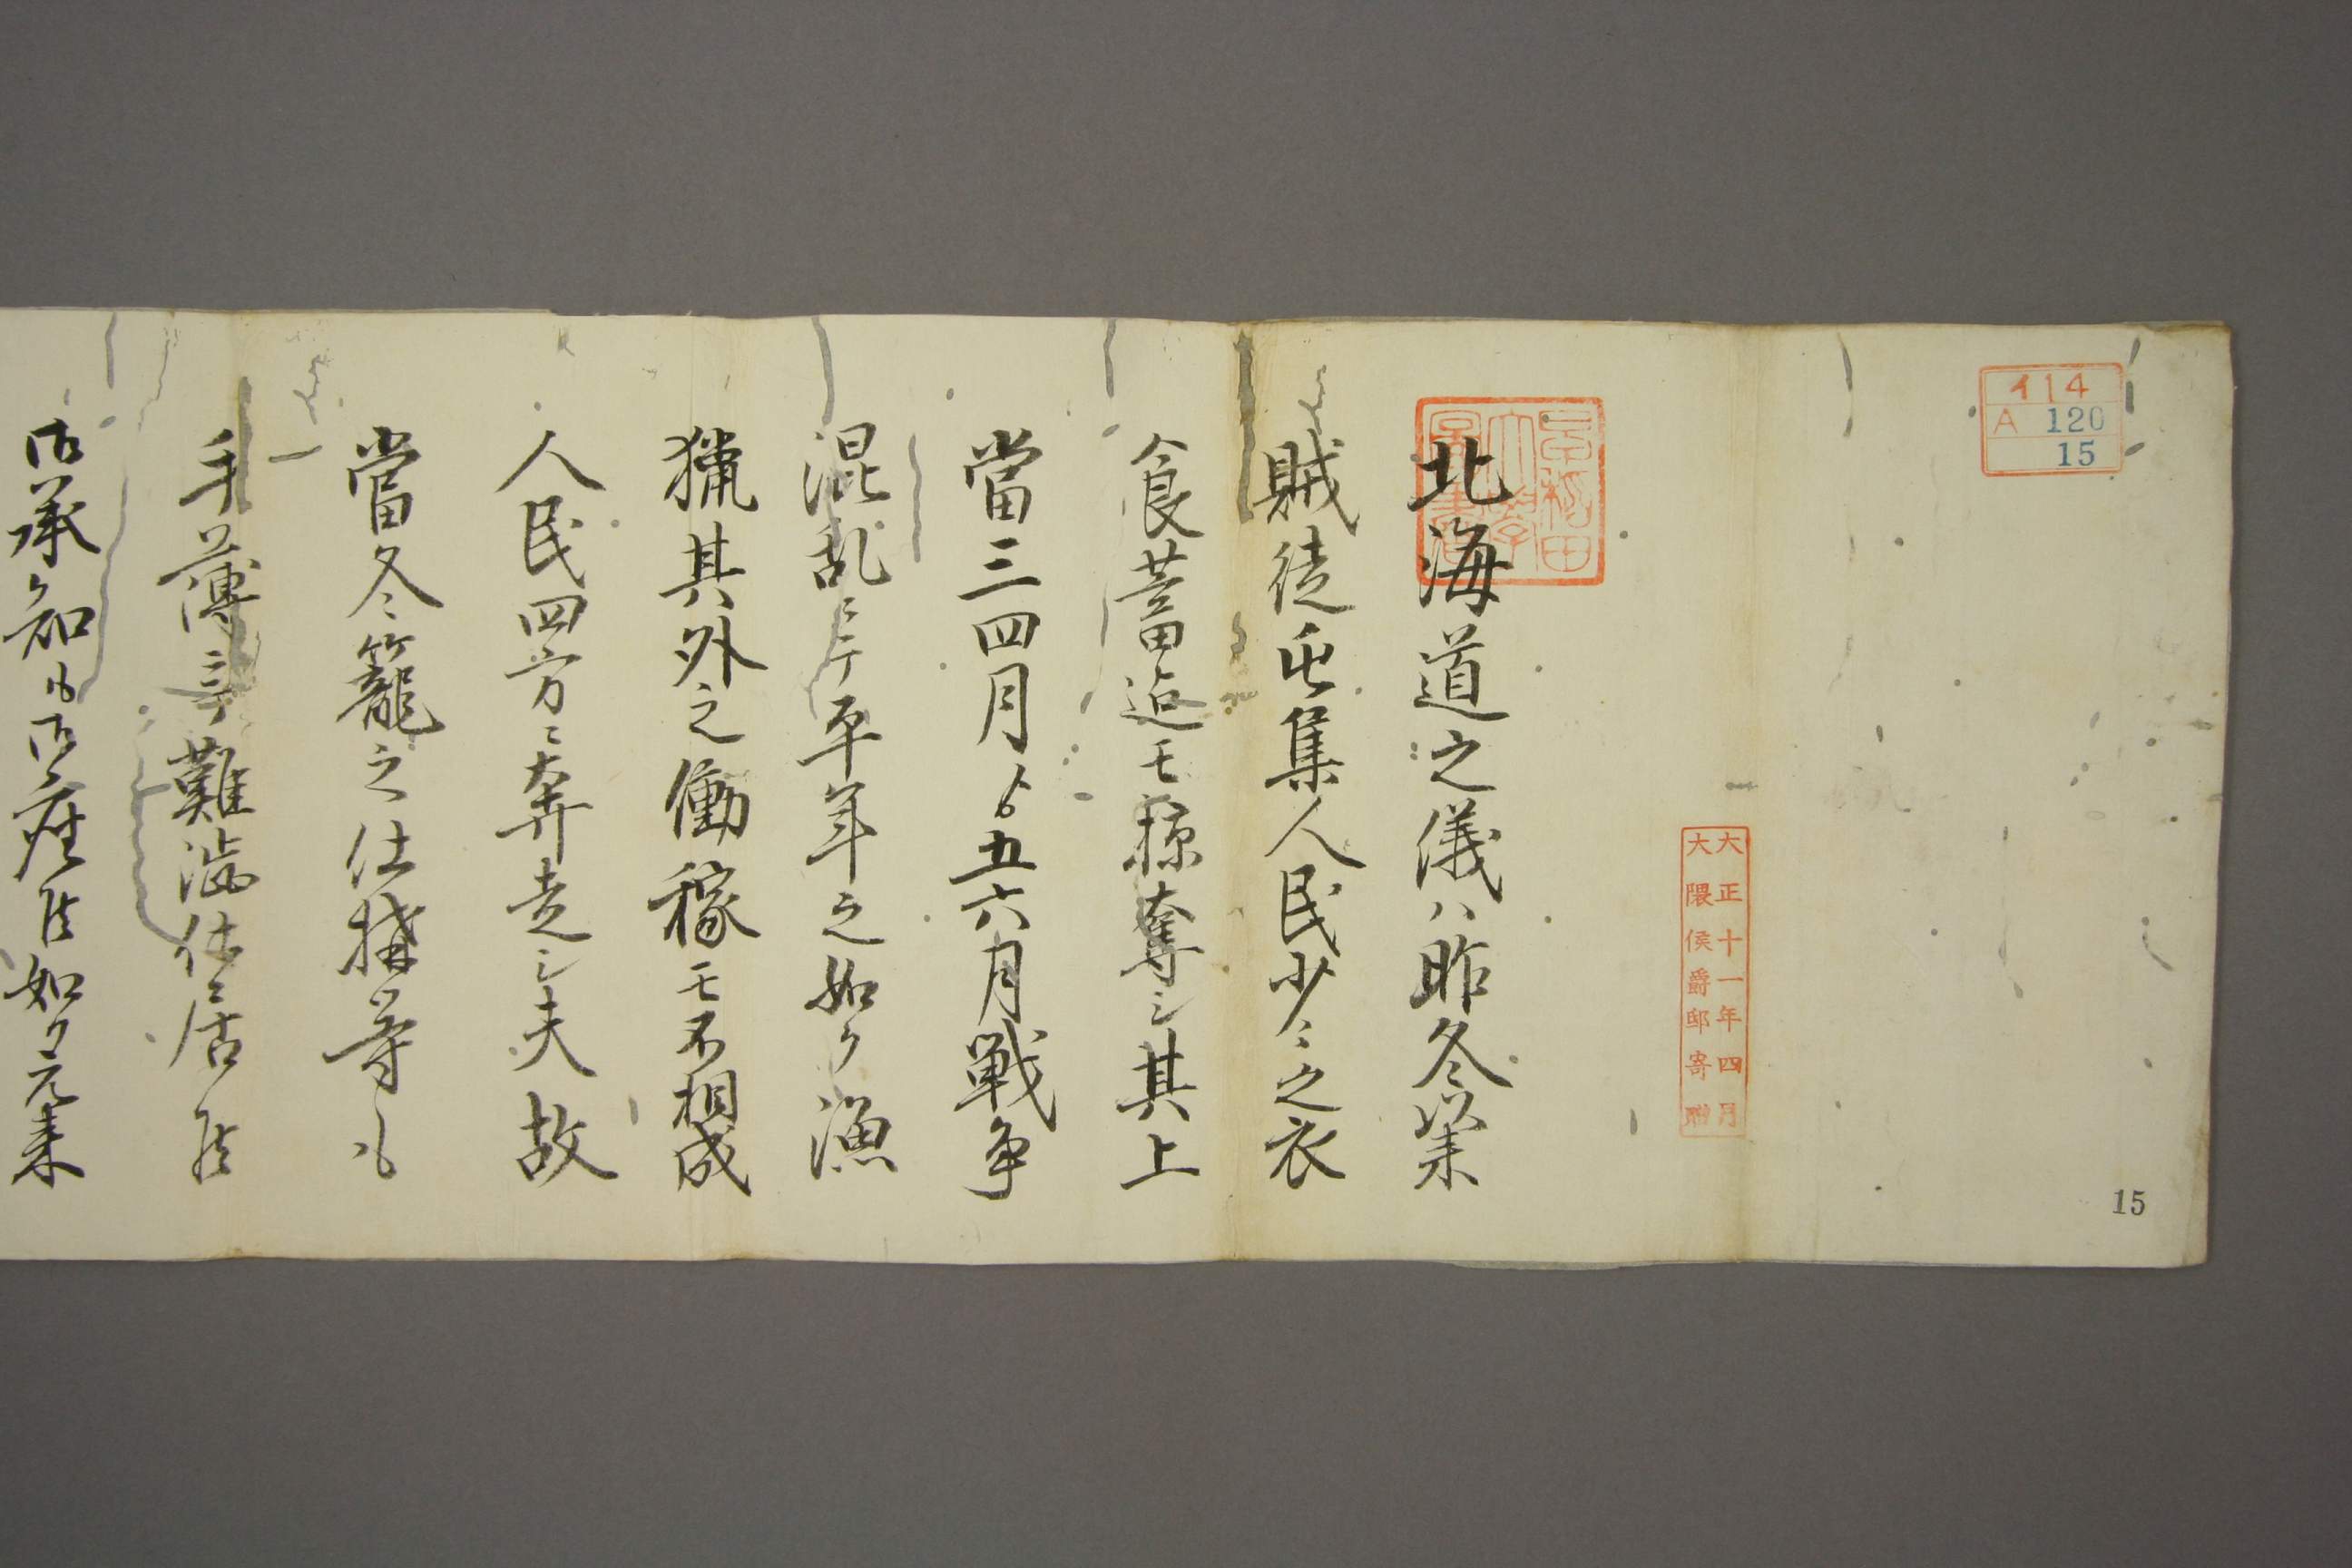 イ14
A 120
15
大正十一年四月
大隈侯爵邸寄贈
早稲田
大學
圖書
北海道之儀ハ昨冬以来
賊徒屯集人民少々之衣
食蓄迠モ掠奪シ其上
當三四月ゟ五六月戦争
混乱ニテ平年之如ク漁
獵其外之働稼モ不相成
人民四方ニ奔走シ夫故
當冬籠之仕構等も
手薄ニ而難澁仕居候
御承知も御座候如ク元来
15